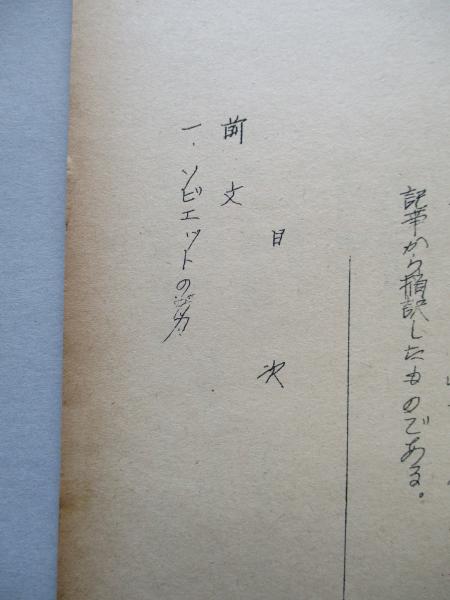 記事から摘訳したものである。
目次
前文
一. ソビエットの